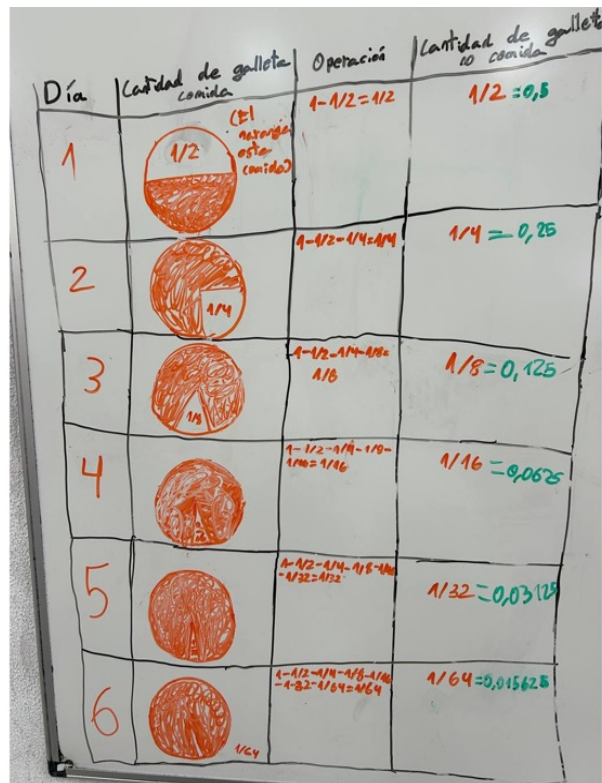 Día
Cantidad de galleta comida
Operación
Cantidad de galleta no comida
1
1/2
(El naranja este comido)
1-1/2=1/2
1/2=0,5
2
1/4
1-1/2-1/4=1/4
1/4=0,25
3
1/8
1-1/2-1/4-1/8=
1/8
1/8=0,125
4
1-1/2-1/4-1/8-
1/16=1/16
1/16=0,0625
5
1-1/2-1/4-1/8-1/16
-1/32=1/32
1/32=0,03125
6
1/64
1-1/2-1/4-1/8-1/16
-1-32-1/64=1/64
1/64=0,015625